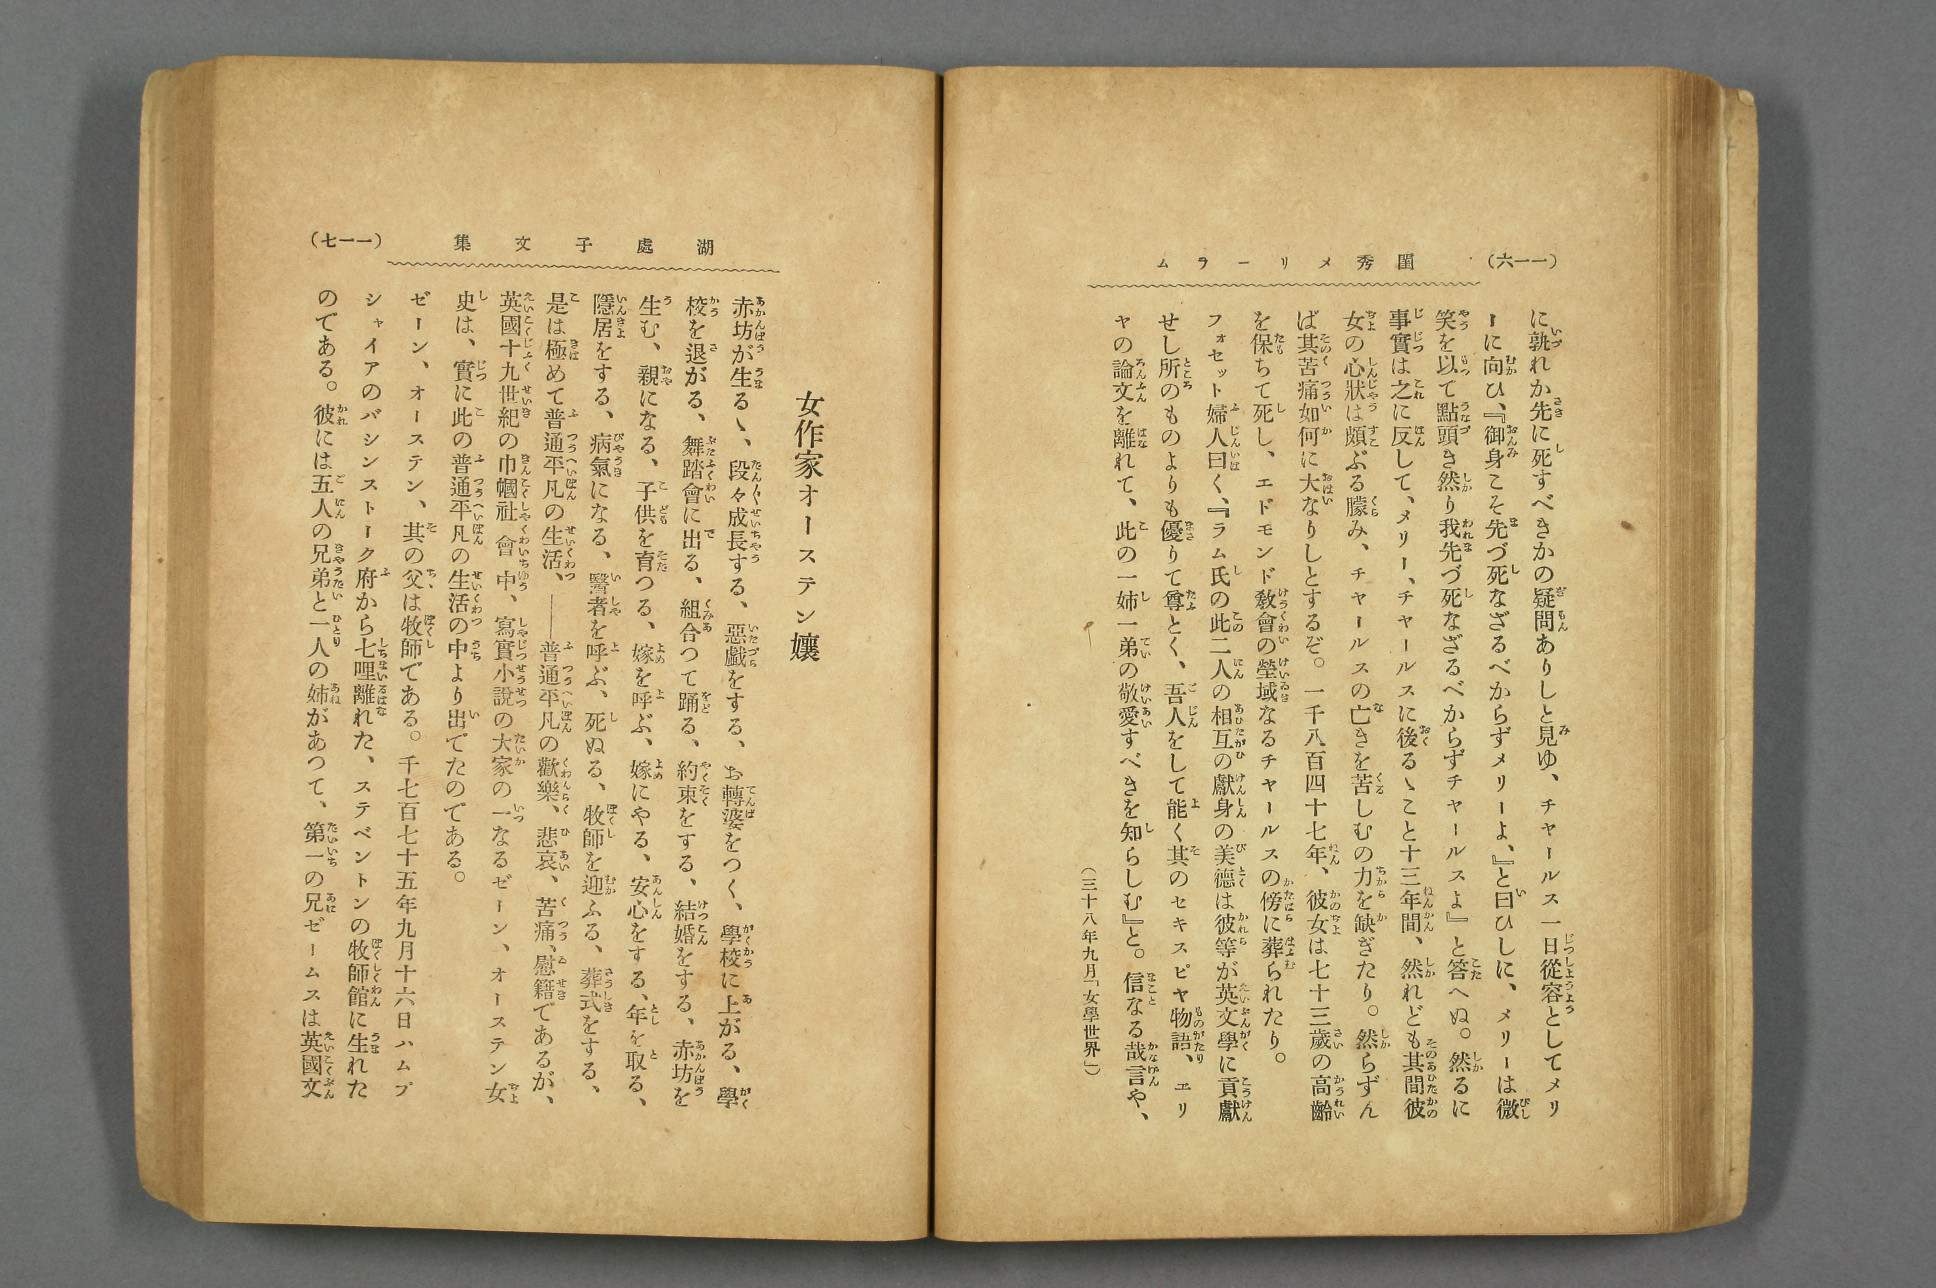 (一一六)
閨秀メリーラム
に孰れか先に死すべきかの疑問ありしと見ゆ、チャールス一日從容としてメリ
ーに向ひ、『御身こそ先づ死なざるべからずメリーよ、』と曰ひしに、メリーは微
笑を以て點頭き然り我先づ死なざるべからずチャールスよ』と答へぬ。然るに
事實は之に反して、メリー、チャールスに後るゝこと十三年間、然れども其間彼
女の心狀は頗ぶる朦み、チャールスの亡きを苦しむの力を缺ぎたり。然らずん
ば其苦痛如何に大なりしとするぞ。一千八百四十七年、彼女は七十三歲の高齡
を保ちて死し、エドモンド敎會の塋域なるチャールスの傍に葬られたり。
フォセット婦人曰く、『ラム氏の此二人の相互の獻身の美德は彼等が英文學に貢獻
せし所のものよりも優りて尊とく、吾人をして能く其のセキスピヤ物語、エリ
ヤの論文を離れて、此の一姉一弟の敬愛すべきを知らしむ』と。信なる哉言や、
(三十八年九月「女學世界」)
湖處子文集
(一一七)
女作家オーステン孃
赤坊が生るゝ、段々成長する、惡戯をする、お轉婆をつく、學校に上がる、學
校を退がる、舞踏會に出る、組合つて踊る、約束をする、結婚をする、赤坊を
生む、親になる、子供を育つる、嫁を呼ぶ、嫁にやる、安心をする、年を取る、
隱居をする、病氣になる、醫者を呼ぶ、死ぬる、牧師を迎ふる、葬式をする、
是は極めて普通平凡の生活、——普通平凡の歡樂、悲哀、苦痛、慰籍であるが、
英國十九世紀の巾幗社會中、寫實小說の大家の一なるゼーン、オーステン女
史は、實に此の普通平凡の生活の中より出でたのである。
ゼーン、オーステン、其の父は牧師である。千七百七十五年九月十六日ハムプ
シャイアのバシンストーク府から七哩離れた、ステベントンの牧師館に生れた
のである。彼には五人の兄弟と一人の姉があつて、第一の兄ゼームスは英國文